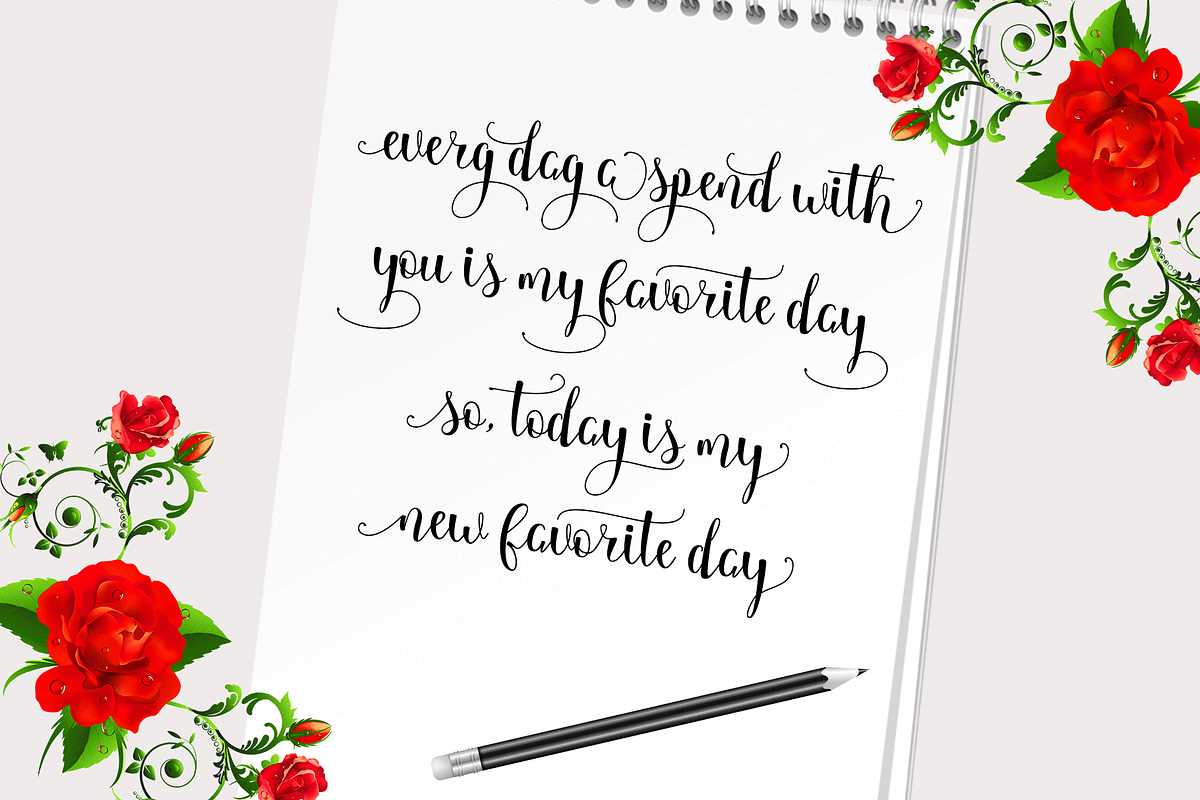 everg dag a spend with
you is my favorite day
so, today is my
new favorite day